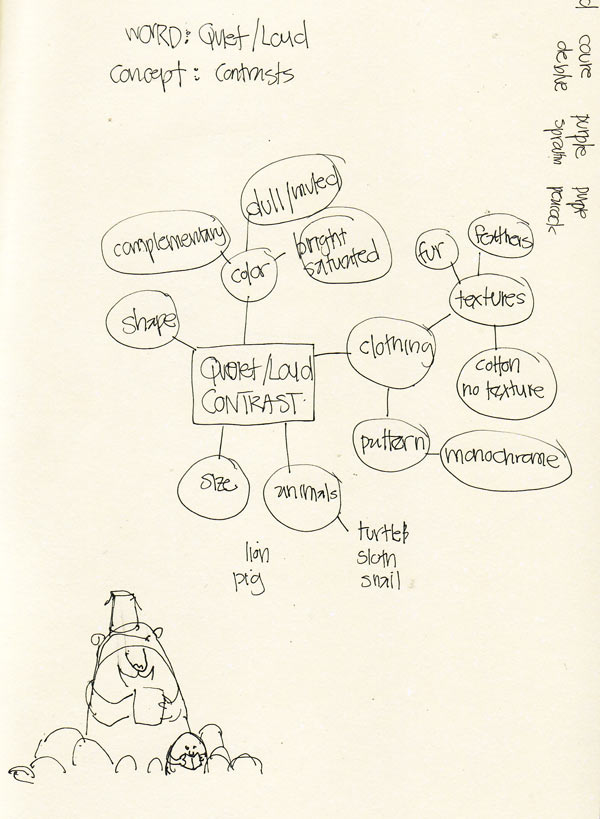 WORD: Quiet/Loud
Concept: Contrasts
dull/muted
complementary
color
bright
saturated
shape
Quiet/Loud
CONTRAST
clothing
fur
feathers
textures
cotton
no texture
pattern
monochrome
size
animals
lion
pig
turtle
sloth
snail
purple purple
peacock